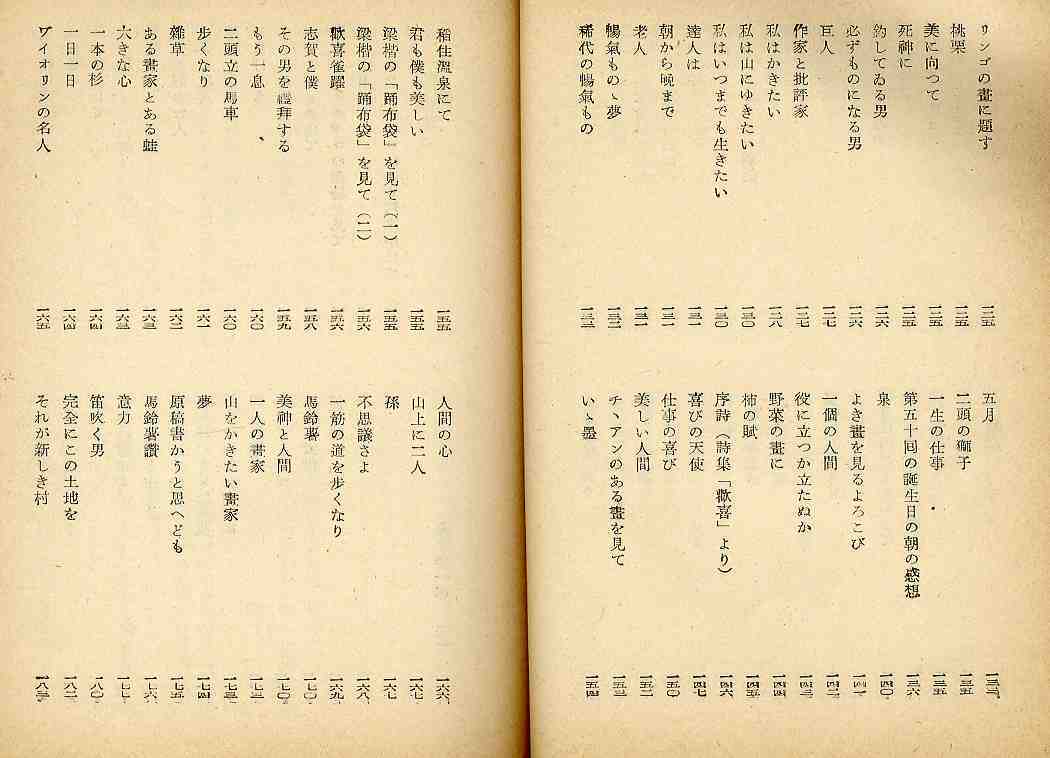 リンゴの畫に題す 一二五
桃栗 一二五
美に向つて 一二五
死神に 一二五
釣してゐる男 一二六
必ずものになる男 一二六
巨人 一二七
作家と批評家 一二七
私はかきたい 一二八
私は山にゆきたい 一三〇
私はいつまでも生きたい 一三〇
達人は 一三一
朝から晩まで 一三一
老人 一三一
暢氣ものゝ夢 一三二
稀代の暢氣もの
五月
二頭の獅子 一三五
一生の仕事 一三五
第五十回の誕生日の朝の感想 一三六
泉 一四〇
よき畫を見るよろこび 一四一
一個の人間 一四二
役に立つか立たぬか 一四三
野菜の畫に 一四四
柿の賦 一四五
序詩(詩集「歡喜」より) 一四六
喜びの天使 一四七
仕事の喜び 一五〇
美しい人間 一五二
チヽアンのある畫を見て 一五三
いゝ墨 一五四
稻住溫泉にて 一五五
君も僕も美しい 一五五
梁楷の「踊布袋」を見て(一) 一五五
梁楷の「踊布袋」を見て(二) 一五六
歡喜雀躍 一五六
志賀と僕 一五八
その男を禮拜する 一五九
もう一息 一六〇
二頭立の馬車 一六〇
步くなり 一六一
雜草 一六二
ある畫家とある蛙 一六三
大きな心 一六三
一本の杉 一六四
一日一日 一六四
ヴイオリンの名人 一六五
人間の心 一六六
山上に二人 一六七
孫 一六七
不思議さよ 一六八
一筋の道を步くなり 一六九
馬鈴薯 一七〇
美神と人間 一七〇
一人の畫家
山をかきたい畫家
夢 一七四
原稿書かうと思へども 一七五
馬鈴薯讚 一七六
意力 一七七
笛吹く男 一八〇
完全にこの土地を 一八二
それが新しき村 一八三